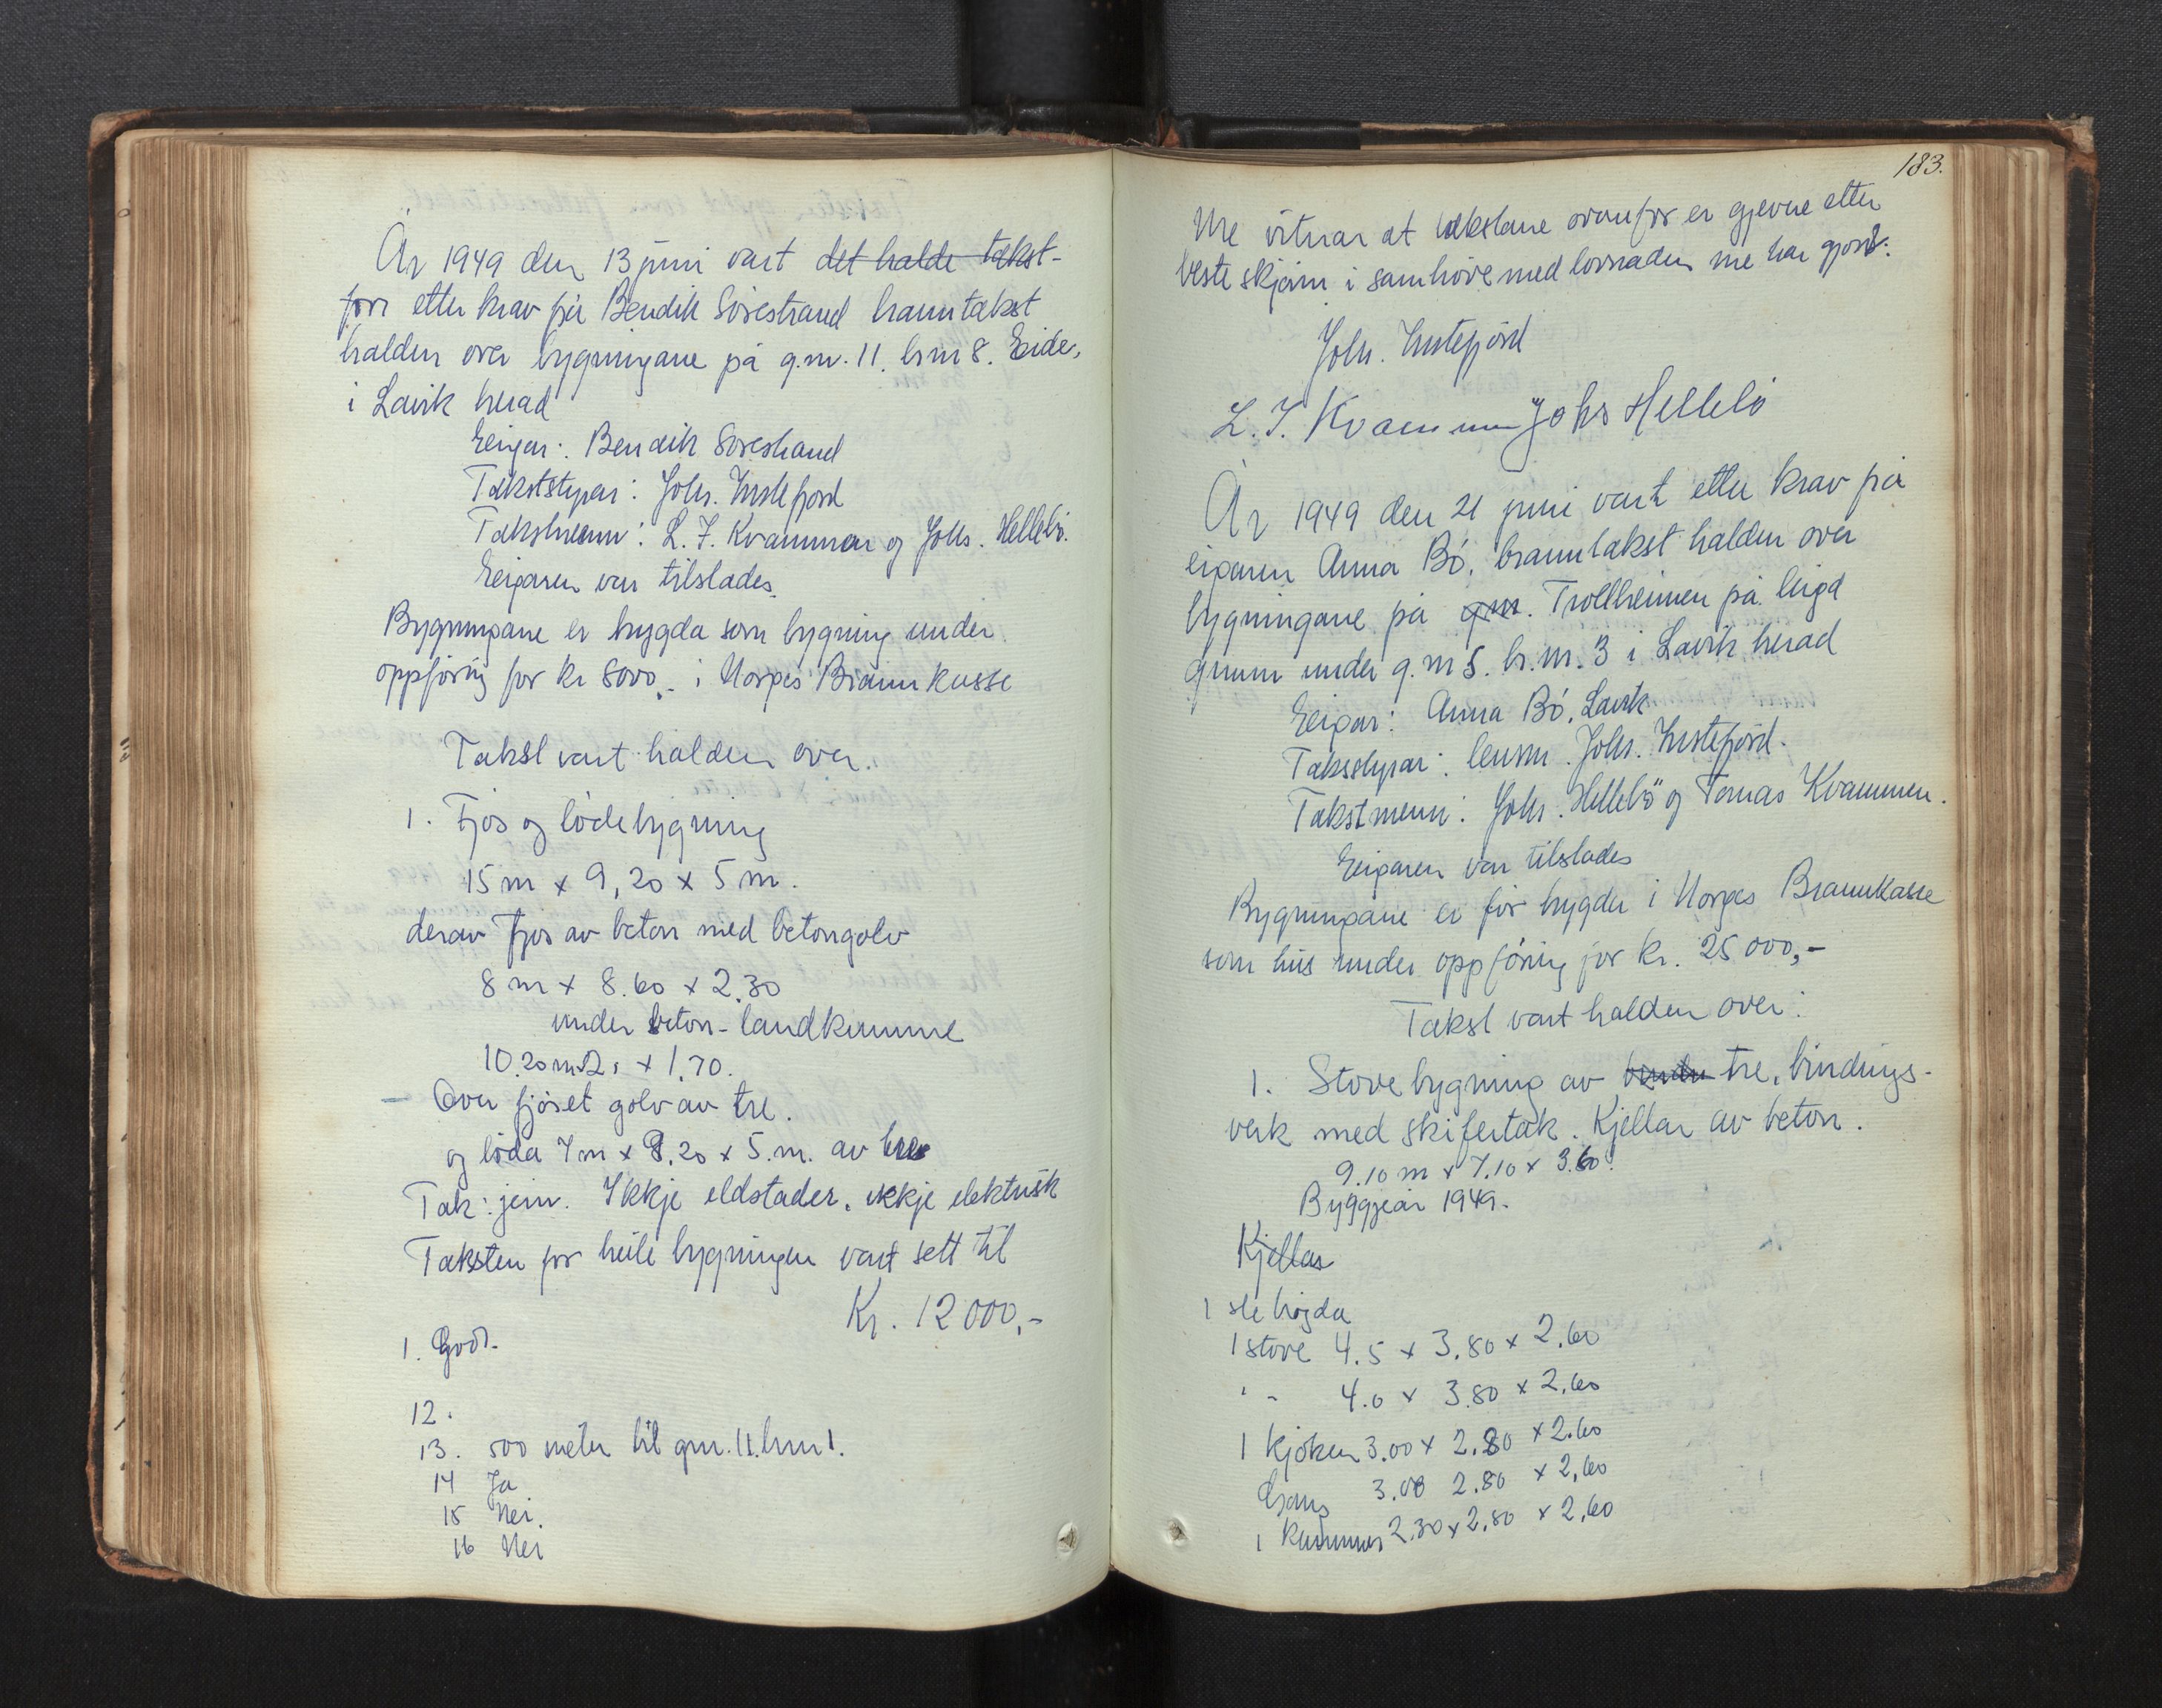 År 1949 den 13 juni vart det halde takst-
forr etter krav frå Bendik Sørestrand branntakst
halden over bygningane på g.nr. 11. br.nr 8. Eide,
i Lavik herad
Eigar: Bendik Sørestrand
Takststyrar: Johs. Instefjord
Takstmenn: L. J. Kvammen og Johs. Hellebø.
Eigaren var tilstades.
Bygningane er trygda som bygning under
oppføring for kr 8000,- i Norges Brannkasse
Takst vart halden over.
1. Fjøs og lødebygning
15 m x 9,20 x 5 m.
derav fjøs av beton med betongolv
8 m x 8.60 x 2.30
under beton-landkumme
10.20 m 2, x 1.70.
- Over fjøset golv av tre.
og løda 7 m x 9.20 x 5. m. av tre
Tak: jern. Ikkje eldstader. ikkje elektrisk
Taksten for heile bygningen vart sett til
Kr. 12 000,-
1. God.
12.
13. 500 meter til gnr. 11. brnr 1.
14 Ja
15 Nei.
16 Nei
183.
Me vitnar at takstane ovanfor er gjevne etter
beste skjøn i samhøve med lovnaden me har gjort.
Johs. Instefjord
L. J. Kvammen Johs Hellebø
År 1949 den 21 juni vart etter krav frå
eigaren Anna Bø, branntakst halden over
bygningane på gnr. Trollheimen på leigd
grunn under g.nr 5. br.nr. 3 i Lavik herad
Eigar: Anna Bø, Lavik
Takststyrar: lensm. Johs. Instefjord.
Takstmenn: Johs. Hellebø og Tomas Kvammen.
Eigaren var tilstades
Bygningane er før trygda i Norges Brannkasse
som hus under oppføring for kr. 25 000,-
Takst vart halden over:
1. Stovebygning av tre, bindings-
verk med skifertak. Kjellar av beton.
9.10 m x 7.10 x 3.60.
Byggjeår 1949.
Kjellar
1 ste høgda
1 stove 4.5 x 3.80 x 2.60
" - 4.0 x 3.80 x 2.60
1 Kjøken 3.00 x 2.80 x 2.60
Gang 3.00 2.80 x 2.60
1 Kammer 2.30 x 2.80 x 2.60